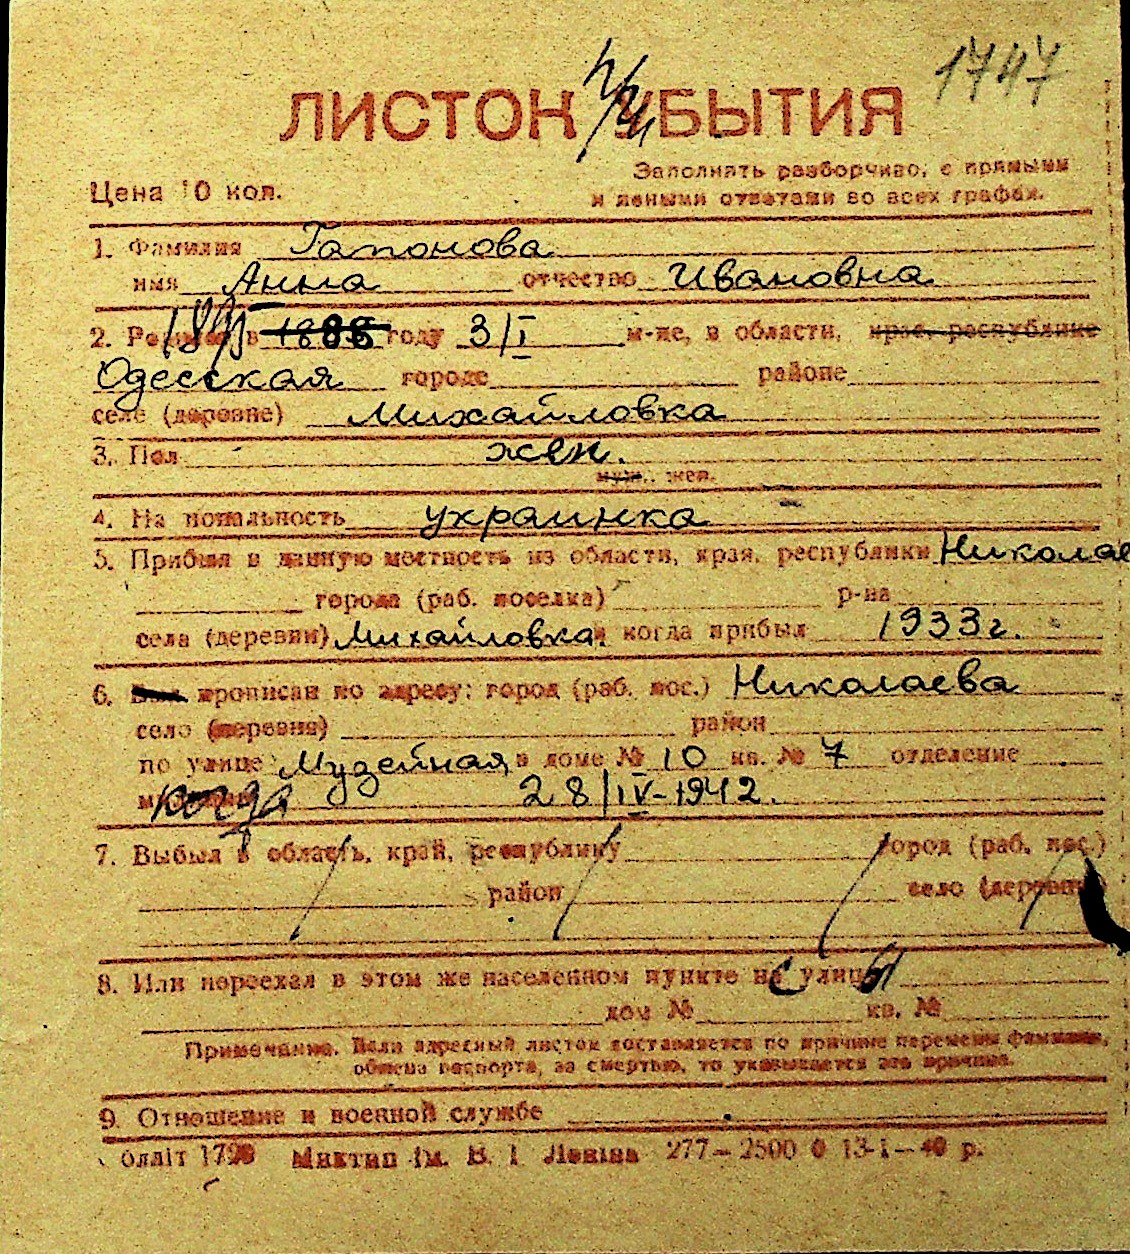 1747
ЛИСТОК УБЫТИЯ
Цена 10 коп.
Заполнять разборчиво, с прямыми
и ясными ответами во всех графах.
1. Фамилия Гапонова
имя Анна отчество Ивановна
2. в 1888 году 3/I м-це, в области, крае, республике
Одесская городе районе
селе (деревне) Михайловка
3. Пол жен.
муж., жен.
4. Национальность украинка
5. Прибыл в данную местность из области, края, республики Николае
города (раб. поселка) р-на
села (деревни) Михайловка и когда прибыл 1933 г.
6. Был прописан по адресу: город (раб. пос.) Николаева
село (деревня) район
по улице Музейная в доме № 10 кв. № 7 отделение
когда 28/IV-1942.
7. Выбыл в область, край, республику город (раб. пос.)
район село (деревня)
8. Или переехал в этом же населенном пункте с улицы
дом № кв. №
Примечание. Если адресный листок составляется по причине перемены фамилии,
обмена паспорта, за смертью, то указывается эта причина.
9. Отношение к военной службе
Миктип ім. В. І Леніна 277—2500 0 13-I—40 р.